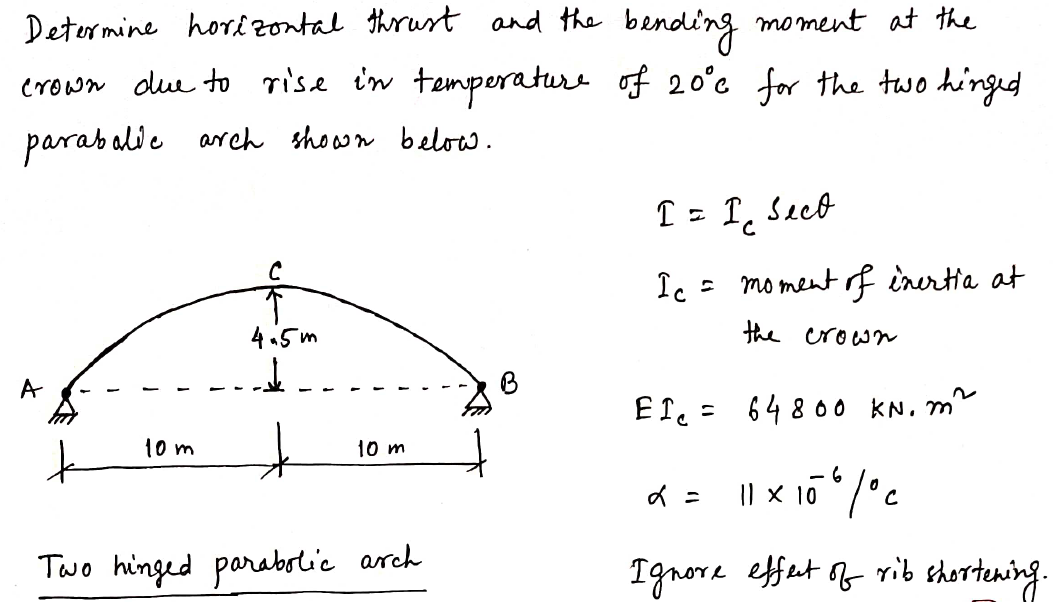 Determine horizontal thrust and the bending moment at the
crown due to rise in temperature of 20°c for the two hinged
parabolic arch shown below.
I = I_c Secθ
I_c = moment of inertia at
the crown
C
4.5 m
A
B
EI_c = 64800 KN.m²
10 m
10 m
α = 11 × 10⁻⁶/°c
Two hinged parabolic arch
Ignore effect of rib shortening.